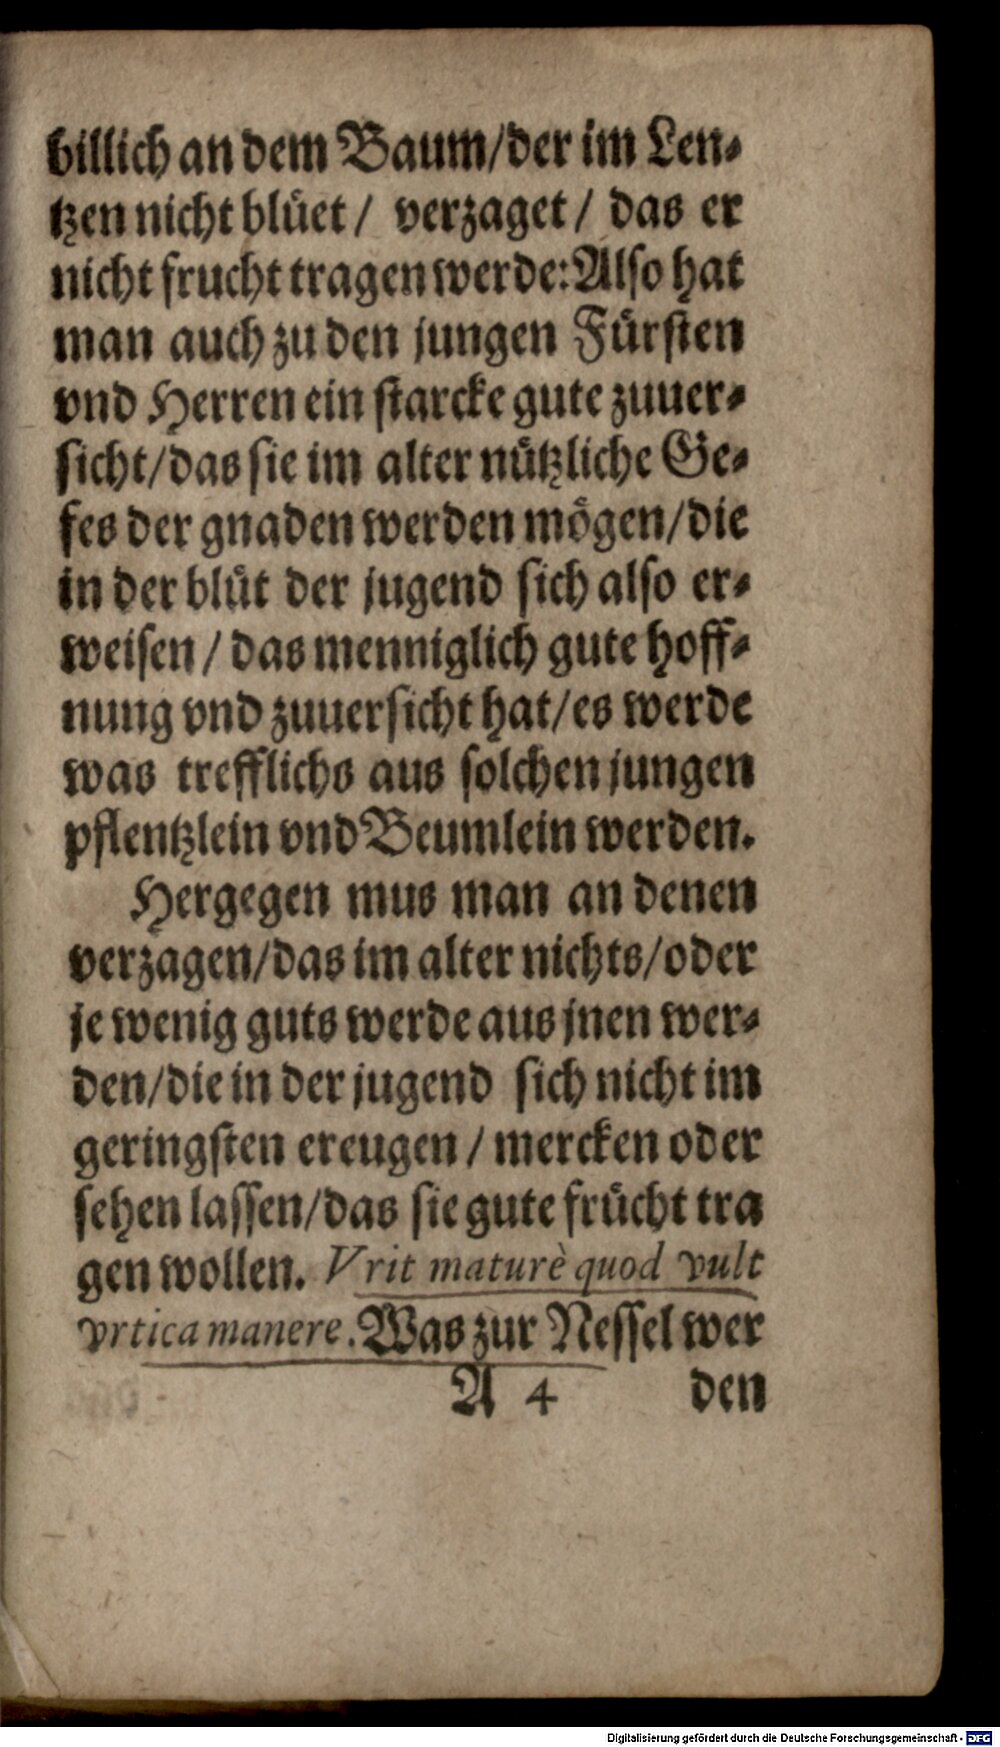 billich an dem Baum/der im Len⸗
tzen nicht blüet/ verzaget/ das er
nicht frucht tragen werde: Also hat
man auch zu den jungen Fürsten
vnd Herren ein starcke gute zuuer⸗
sicht/das sie im alter nützliche Ge⸗
fes der gnaden werden mögen/die
in der blüt der jugend sich also er⸗
weisen/das menniglich gute hoff⸗
nung vnd zuuersicht hat/es werde
was trefflichs aus solchen jungen
pflentzlein vnd Beumlein werden.
Hergegen mus man an denen
verzagen/das im alter nichts/oder
je wenig guts werde aus jnen wer⸗
den/die in der jugend sich nicht im
geringsten ereugen/mercken oder
sehen lassen/das sie gute frücht tra
gen wollen. Vrit maturè quod vult
vrtica manere. Was zur Nessel wer
A 4 den
Digitalisierung gefördert durch die Deutsche Forschungsgemeinschaft - DFG